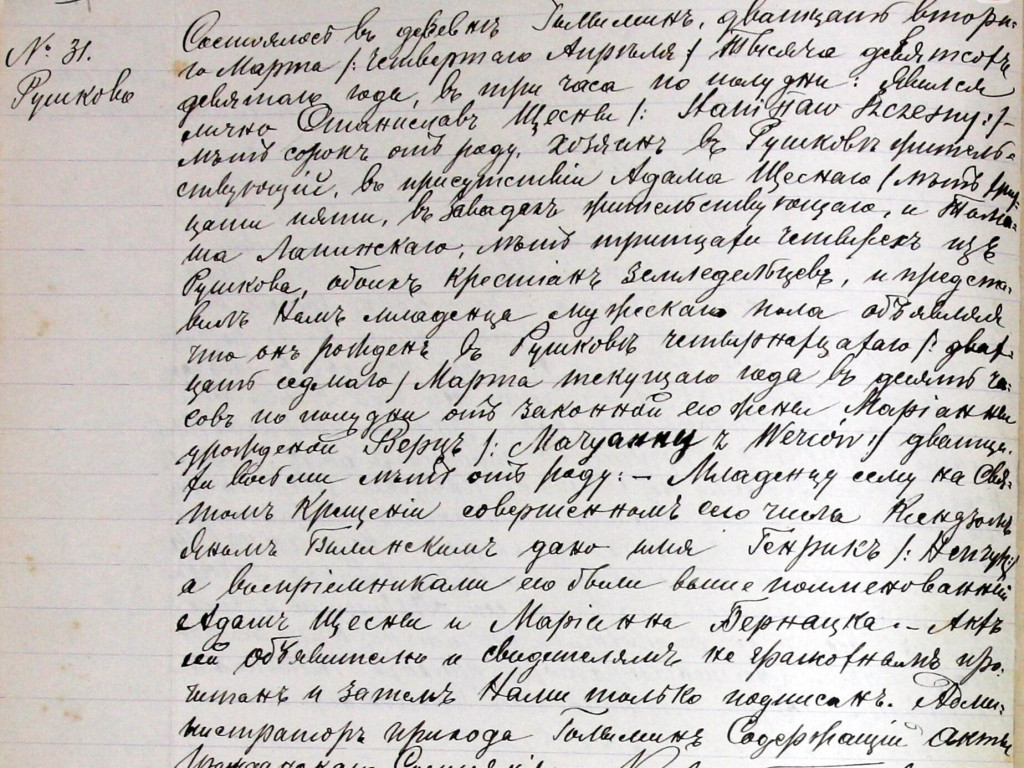 № 31.
Рушково
Состоялось въ деревнѣ Голыминѣ, двадцать второ-
го Марта /: четвертаго Апрѣля / тысяча девятсотъ
девятаго года, въ три часа по полудни: явился
лично Станиславъ Щесны /: Stanisław Szczesny :/ –
лѣтъ сорокъ отъ роду, хозяинъ въ Рушковѣ житель-
ствующій, въ присутствіи Адама Щеснаго / лѣтъ трид-
цати пяти, въ Завадахъ жительствующаго, и Тома-
ша Лапинскаго, лѣтъ тритцати четырехъ изъ
Рушкова, обоихъ крестіанъ земледельцевъ, и предста-
вилъ Намъ младенца мужескаго пола объявляя
что онъ рожденъ въ Рушковѣ четырнатцатаго /: двад-
цать седмаго / Марта текущаго года въ десять ча-
совъ по полудни отъ законной его жены Маріанны
урожденой Верцъ /: Maryanny z Werców :/ дватца-
ти восьми лѣтъ отъ роду: – Младенцу сему на Свя-
томъ Крещеніи совершенномъ сего числа Ксендзомъ
Яномъ Билинскимъ дано имя Генрикъ /: Henryk :/
а воспріемниками его были выше поименованный
Адамъ Щесны и Маріанна Бернацка. – Актъ
сей объявителю и свидетелямъ не грамотнымъ про-
читанъ и затемъ Нами только подписанъ. Адми-
нистраторъ прихода Голыминъ Содержащій акты